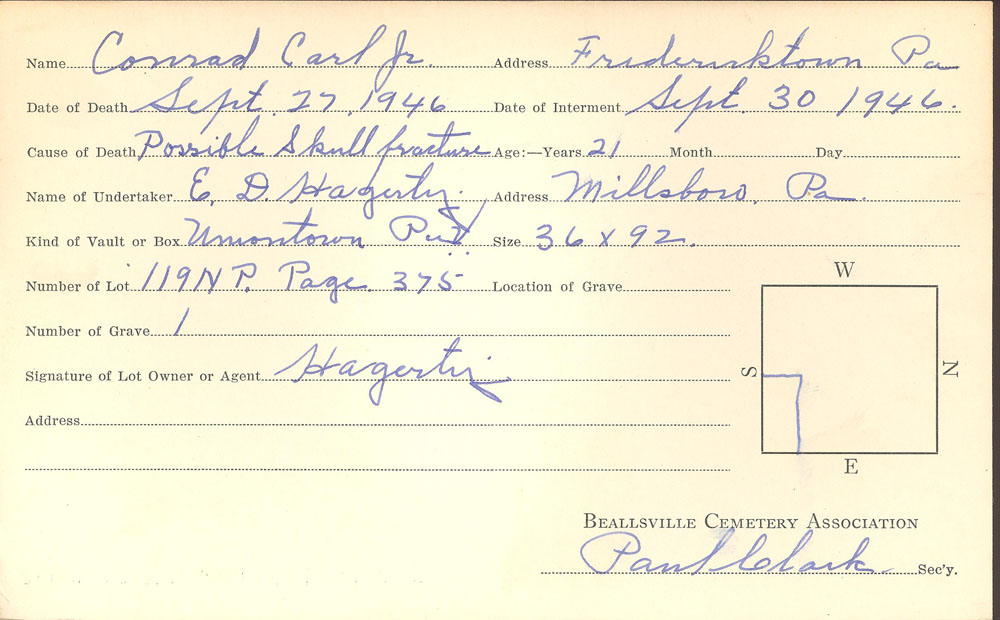 Name Conrad Carl Jr. Address Fredericktown Pa
Date of Death Sept. 27, 1946 Date of Interment Sept. 30 1946.
Cause of Death Possible Skull fracture Age:—Years 21 Month Day
Name of Undertaker E. D. Hagerty. Address Millsboro, Pa.
Kind of Vault or Box Uniontown Size 36 x 92.
Number of Lot 119 N P. Page. 375 Location of Grave
W
Number of Grave 1
S N
Signature of Lot Owner or Agent Hagerty
Address
E
Beallsville Cemetery Association
Paul Clark Sec'y.